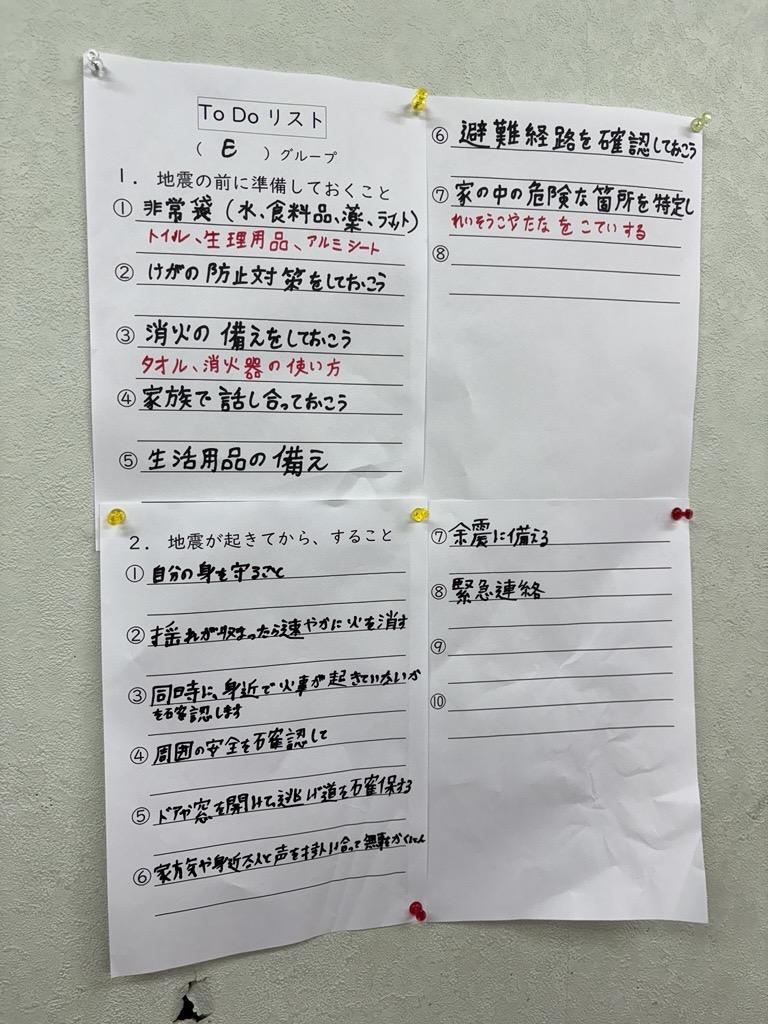 To Do リスト
（ E ）グループ
1. 地震の前に準備しておくこと
① 非常袋（水、食料品、薬、ライト）
トイレ、生理用品、アルミシート
② けがの防止対策をしておこう
③ 消火の備えをしておこう
タオル、消火器の使い方
④ 家族で話し合っておこう
⑤ 生活用品の備え
⑥ 避難経路を確認しておこう
⑦ 家の中の危険な箇所を特定し
れいぞうこやたなをこていする
⑧
2. 地震が起きてから、すること
① 自分の身を守ること
② 揺れが収まったら速やかに火を消す
③ 同時に、身近で火事が起きていないか
を確認します
④ 周囲の安全を確認して
⑤ ドアや窓を開けて、逃げ道を確保する
⑥ 家族や身近な人と声を掛け合って無事かくにん
⑦ 余震に備える
⑧ 緊急連絡
⑨
⑩